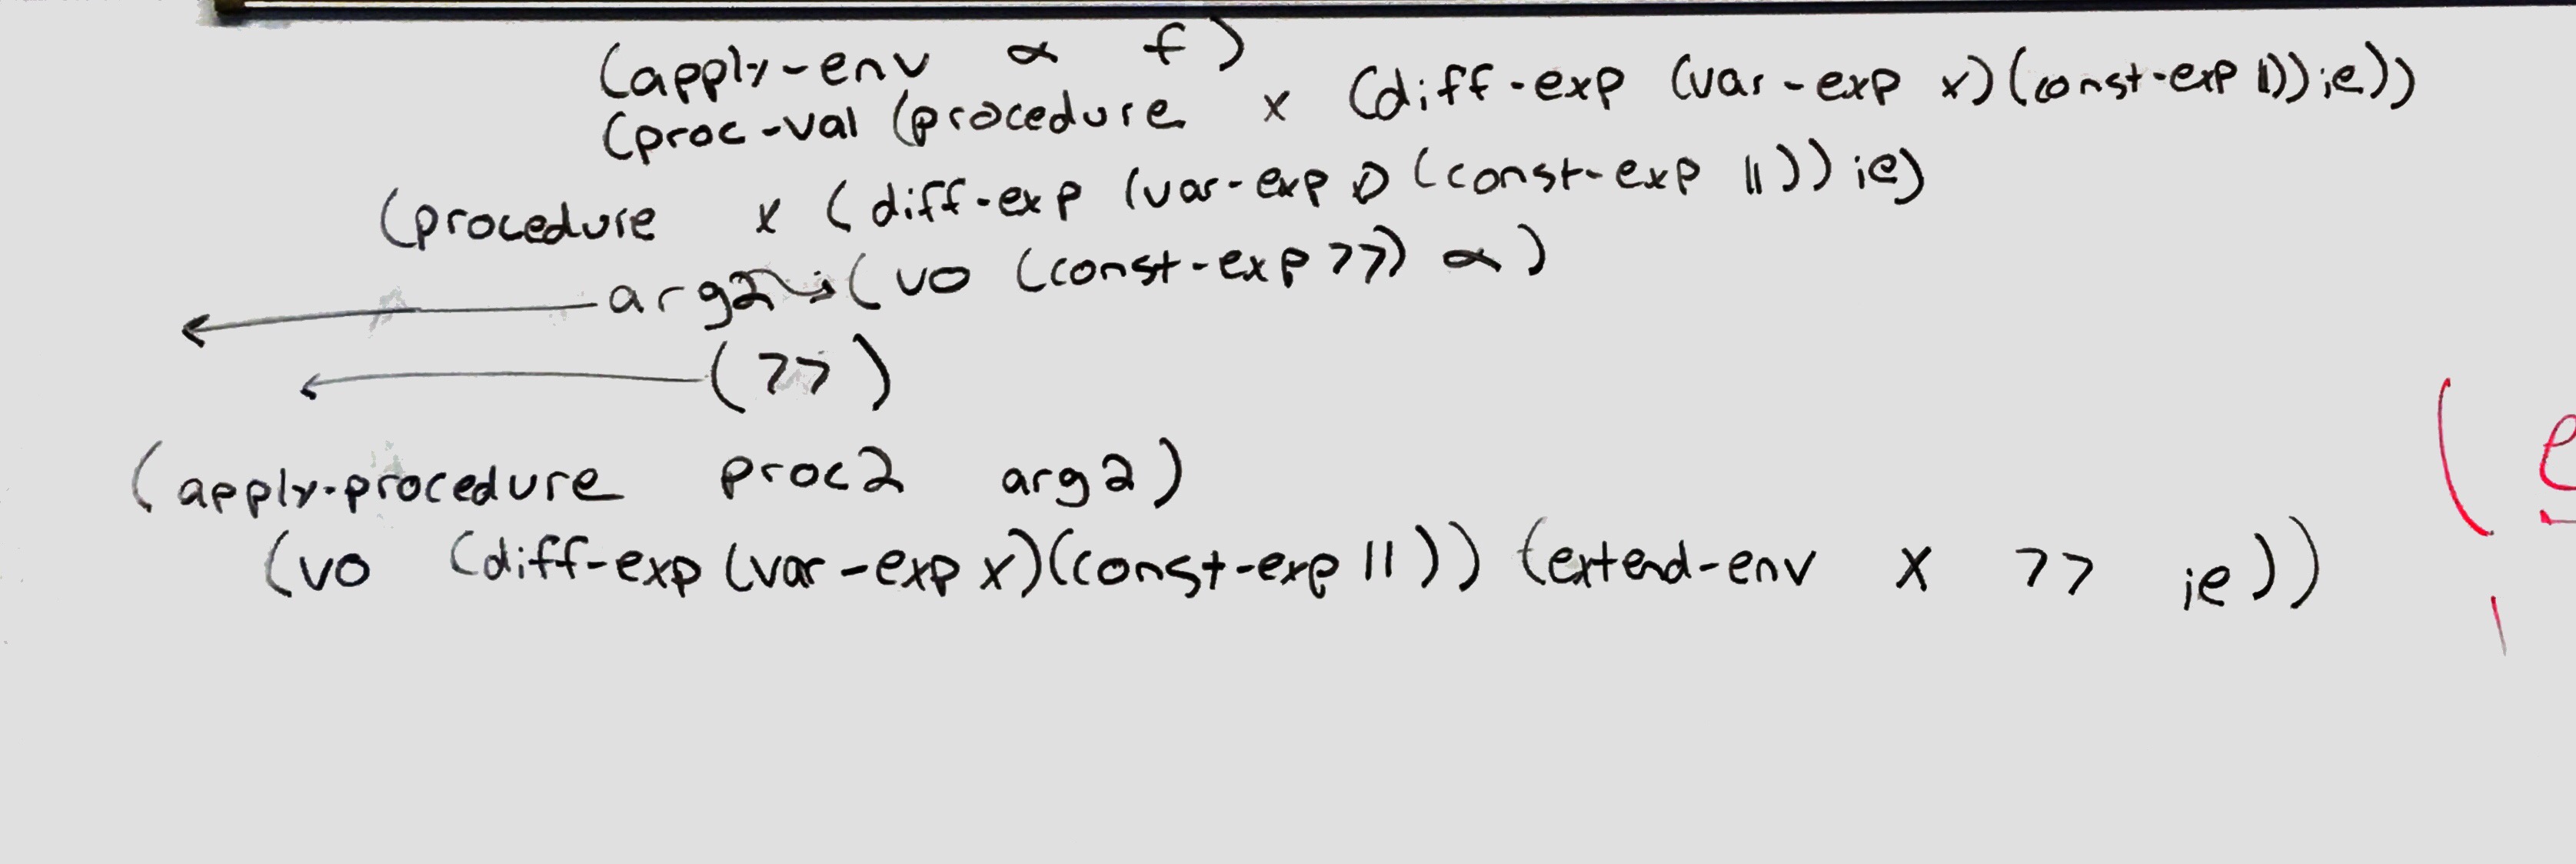 (apply-env α f)
(proc-val (procedure x (diff-exp (var-exp x)(const-exp 11)) ie))
(procedure x (diff-exp (var-exp x) (const-exp 11)) ie)
arg2 → (vo (const-exp 77) α)
(77)
(apply-procedure proc2 arg2)
(vo (diff-exp (var-exp x)(const-exp 11)) (extend-env x 77 ie))
(e